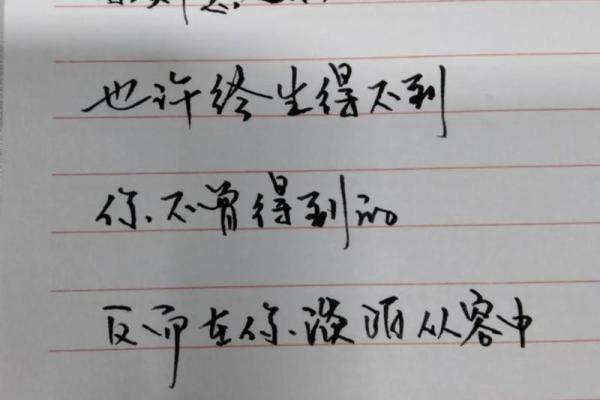 也许终生得不到
你不曾得到的
反而在你淡泊从容中